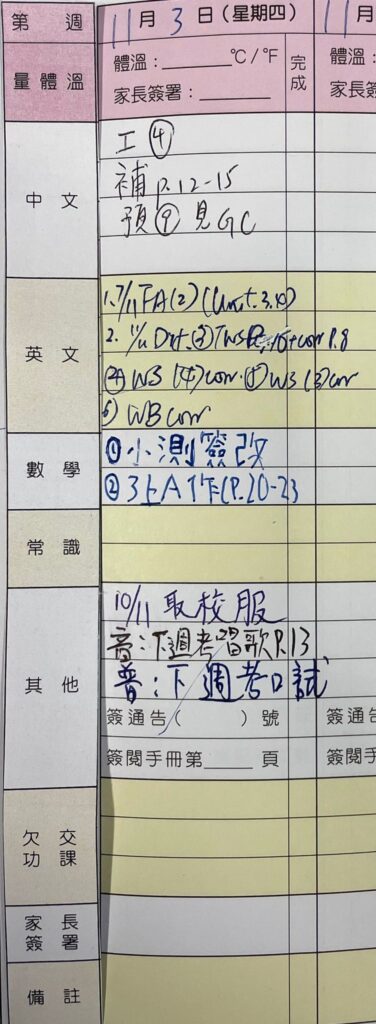 第 週 11月 3 日(星期四) 11月
量體溫 體溫:______°C/°F 完成 體溫:
家長簽署:______ 家長簽
中文 工④
補 P.12-15
預⑨ 見GC
英文 1. 7/11 FA(2) (Unit.3,10)
2. 11/11 Dict.(3)
WS (4) corr. ⑤ WS (3) corr
⑥ WB corr
數學 ①小測簽改
②3上A作(P.20-23
常識
其他 10/11 取校服
音:下週考唱歌P.13
普:下週考口試
簽通告( )號 簽通告
簽閱手冊第____頁 簽閱手
欠交功課
家長簽署
備註